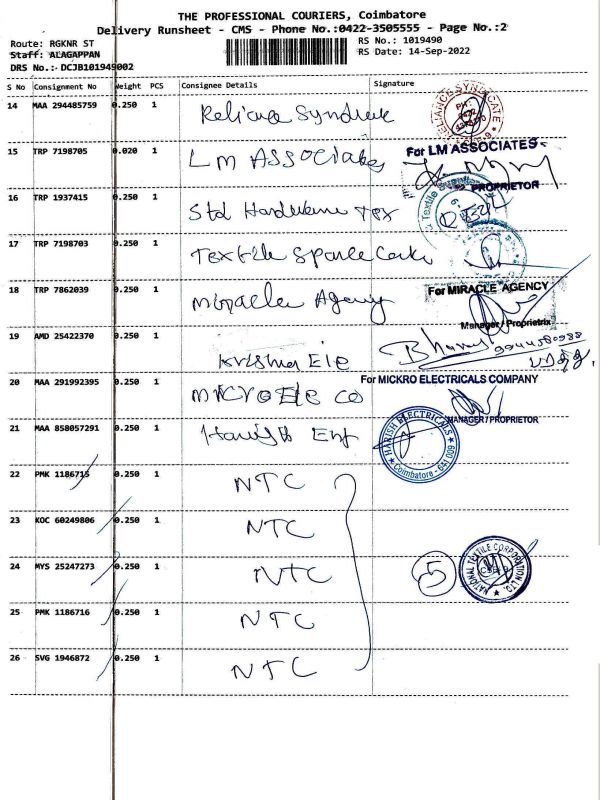 THE PROFESSIONAL COURIERS, Coimbatore
Delivery Runsheet - CMS - Phone No.:0422-3505555 - Page No.:2
Route: RGKNR ST
RS No.: 1019490
Staff: ALAGAPPAN
RS Date: 14-Sep-2022
DRS No.:- DCJB101949002
S No Consignment No Weight PCS Consignee Details Signature
14 MAA 294485759 0.250 1 Reliance Syndicate
RELIANCE SYNDICATE
15 TRP 7198705 0.020 1 LM ASSOCiates
For LM ASSOCIATES
PROPRIETOR
16 TRP 1937415 0.250 1 Std Hardware Tex
17 TRP 7198703 0.250 1 Textile Spares
18 TRP 7862039 0.250 1 Miracle Agency
For MIRACLE AGENCY
Manager / Proprietrix
19 AMD 25422370 0.250 1 Krishna Ele
20 MAA 291992395 0.250 1 MICRO Ele Co
For MICKRO ELECTRICALS COMPANY
MANAGER / PROPRIETOR
21 MAA 858057291 0.250 1
HARISH ELECTRICALS
Coimbatore - 641 009
22 PMK 1186715 0.250 1 NTC
23 KOC 60249806 0.250 1 NTC
24 MYS 25247273 0.250 1 NTC
5
NATIONAL TEXTILE CORPORATION LTD.
25 PMK 1186716 0.250 1 NTC
26 SVG 1946872 0.250 1 NTC